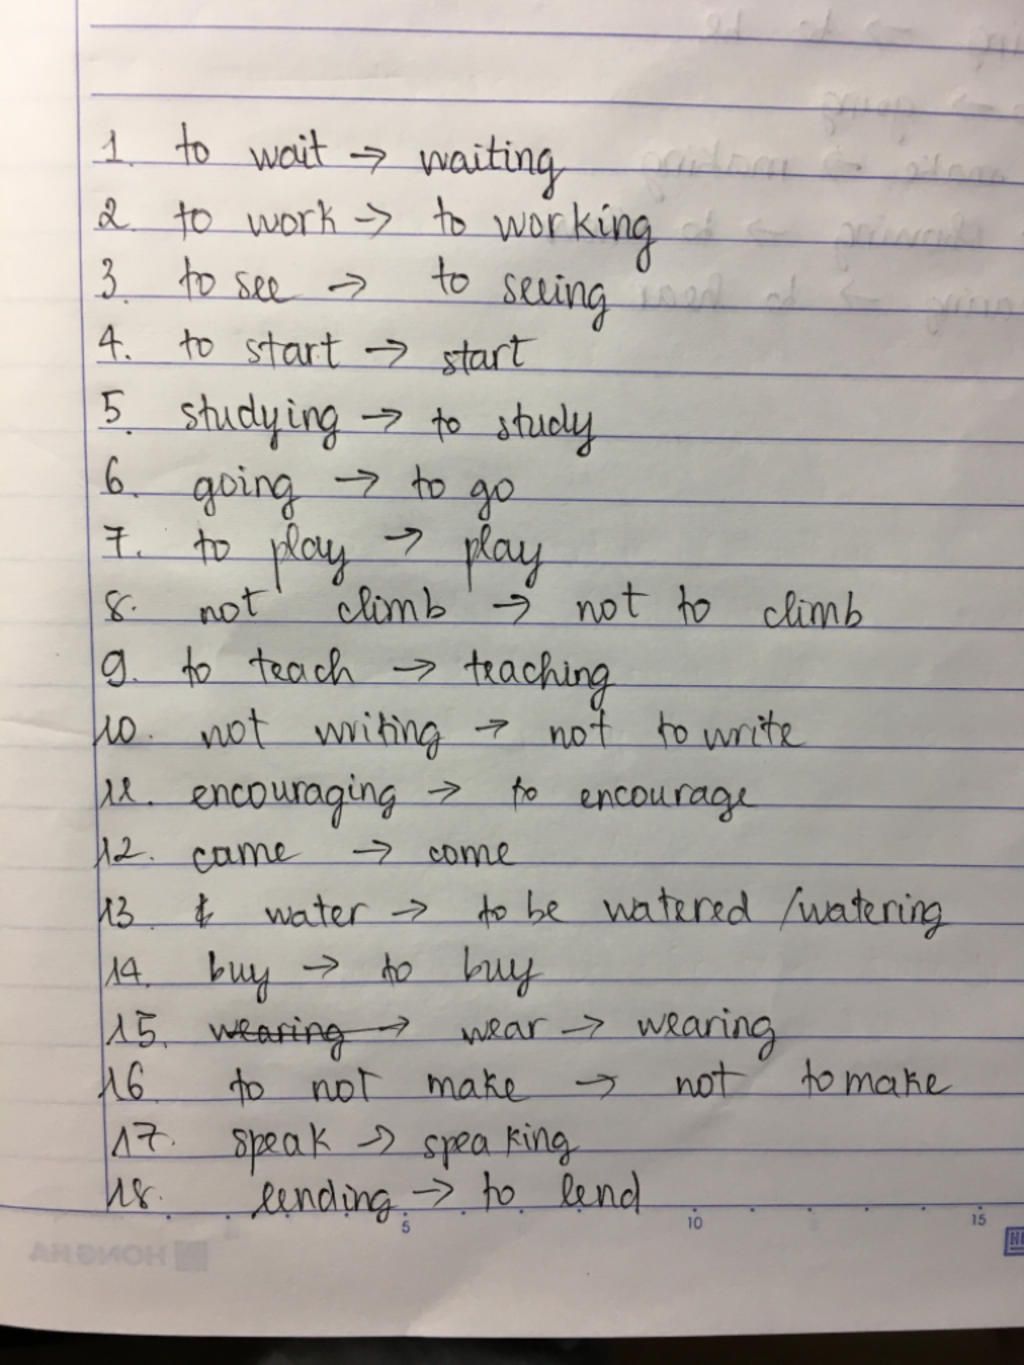 1. to wait → waiting
2. to work → to working
3. to see → to seeing
4. to start → start
5. studying → to study
6. going → to go
7. to play → play
8. not climb → not to climb
9. to teach → teaching
10. not writing → not to write
11. encouraging → to encourage
12. came → come
13. water → to be watered /watering
14. buy → to buy
15. wearing → wear → wearing
16 to not make → not to make
17. speak → speaking
18. lending → to lend
5 10 15
HONG HA